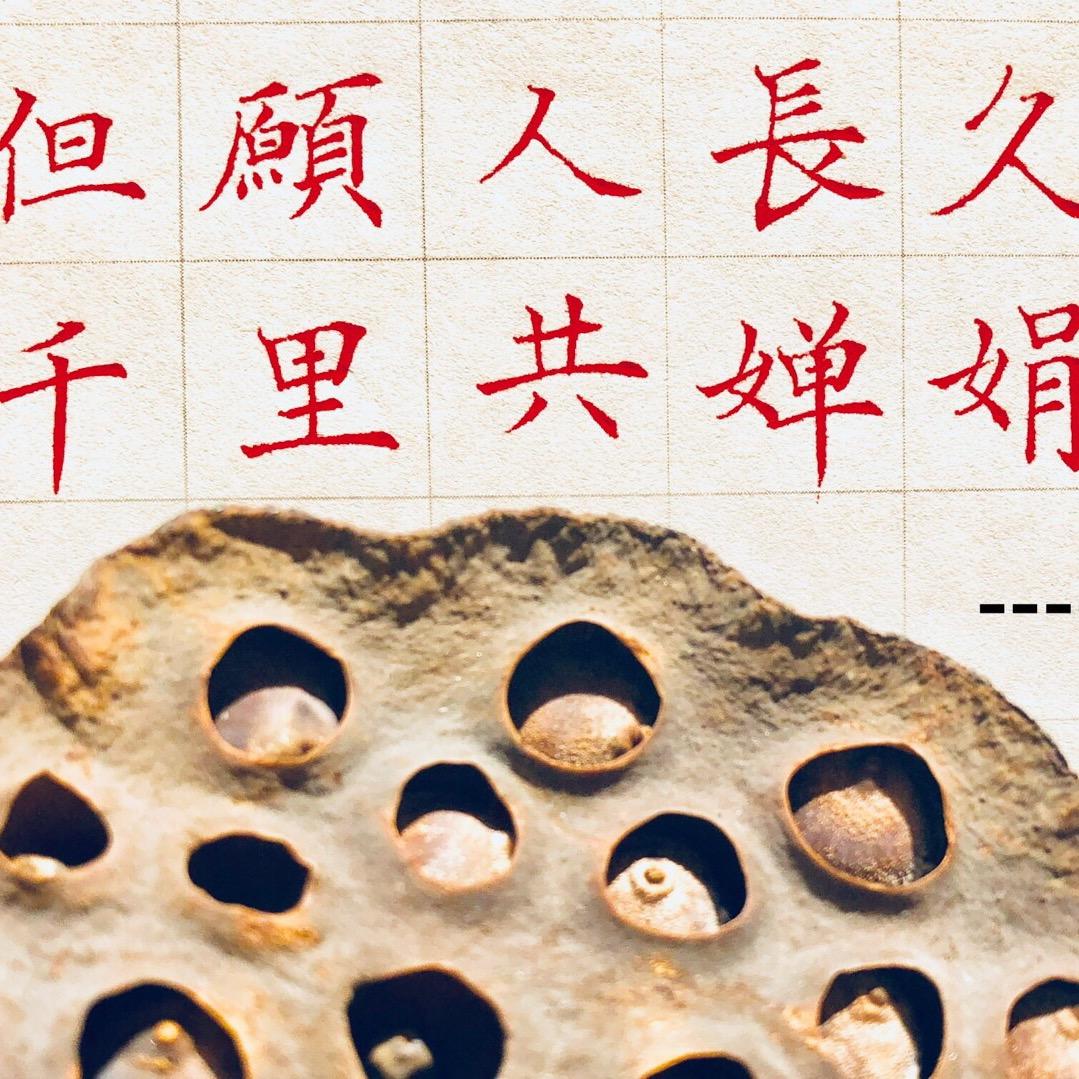 但願人長久
千里共婵娟
---